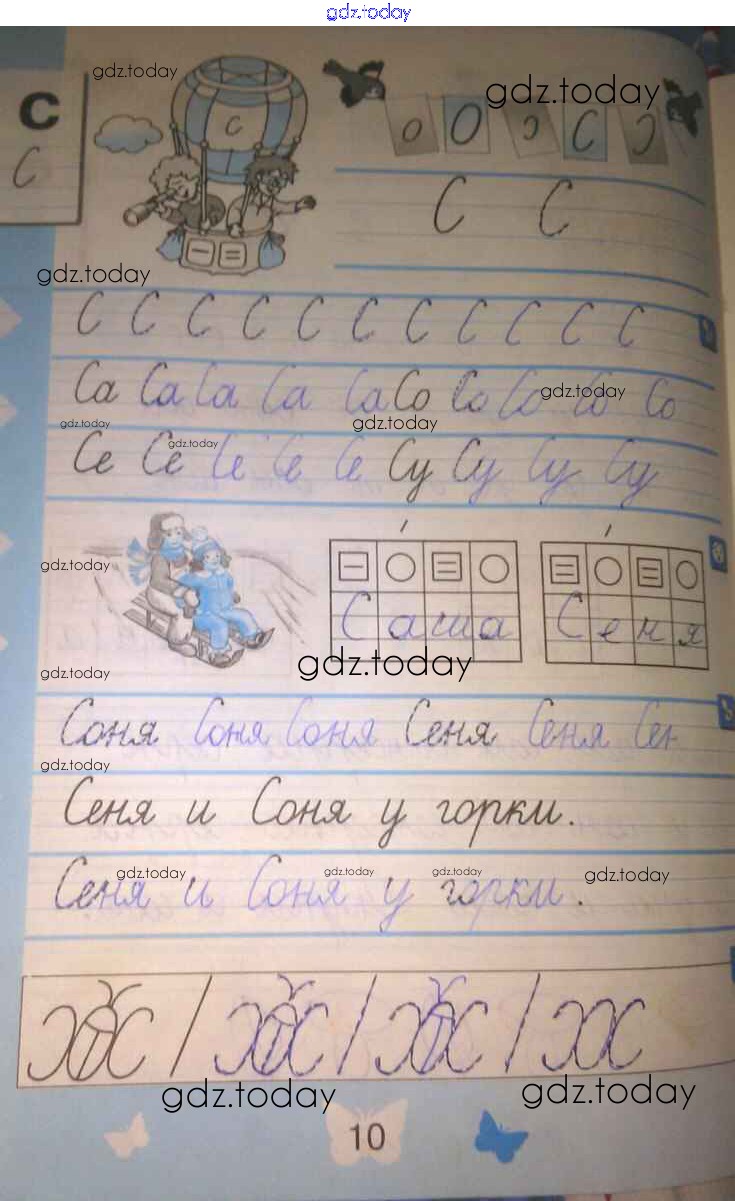 gdz.today
gdz.today
gdz.today
С
С
С
о О с С
С С
gdz.today
С С С С С С С С С С С
Са Са Са Са Са Со Со Со Со Со
gdz.today
gdz.today
gdz.today
gdz.today
Се Се Се Се Се Су Су Су Су
gdz.today
Саша Сеня
gdz.today
gdz.today
Соня Соня Соня Сеня Сеня Сен
gdz.today
Сеня и Соня у горки.
gdz.today gdz.today gdz.today gdz.today
Сеня и Соня у горки.
gdz.today gdz.today
10